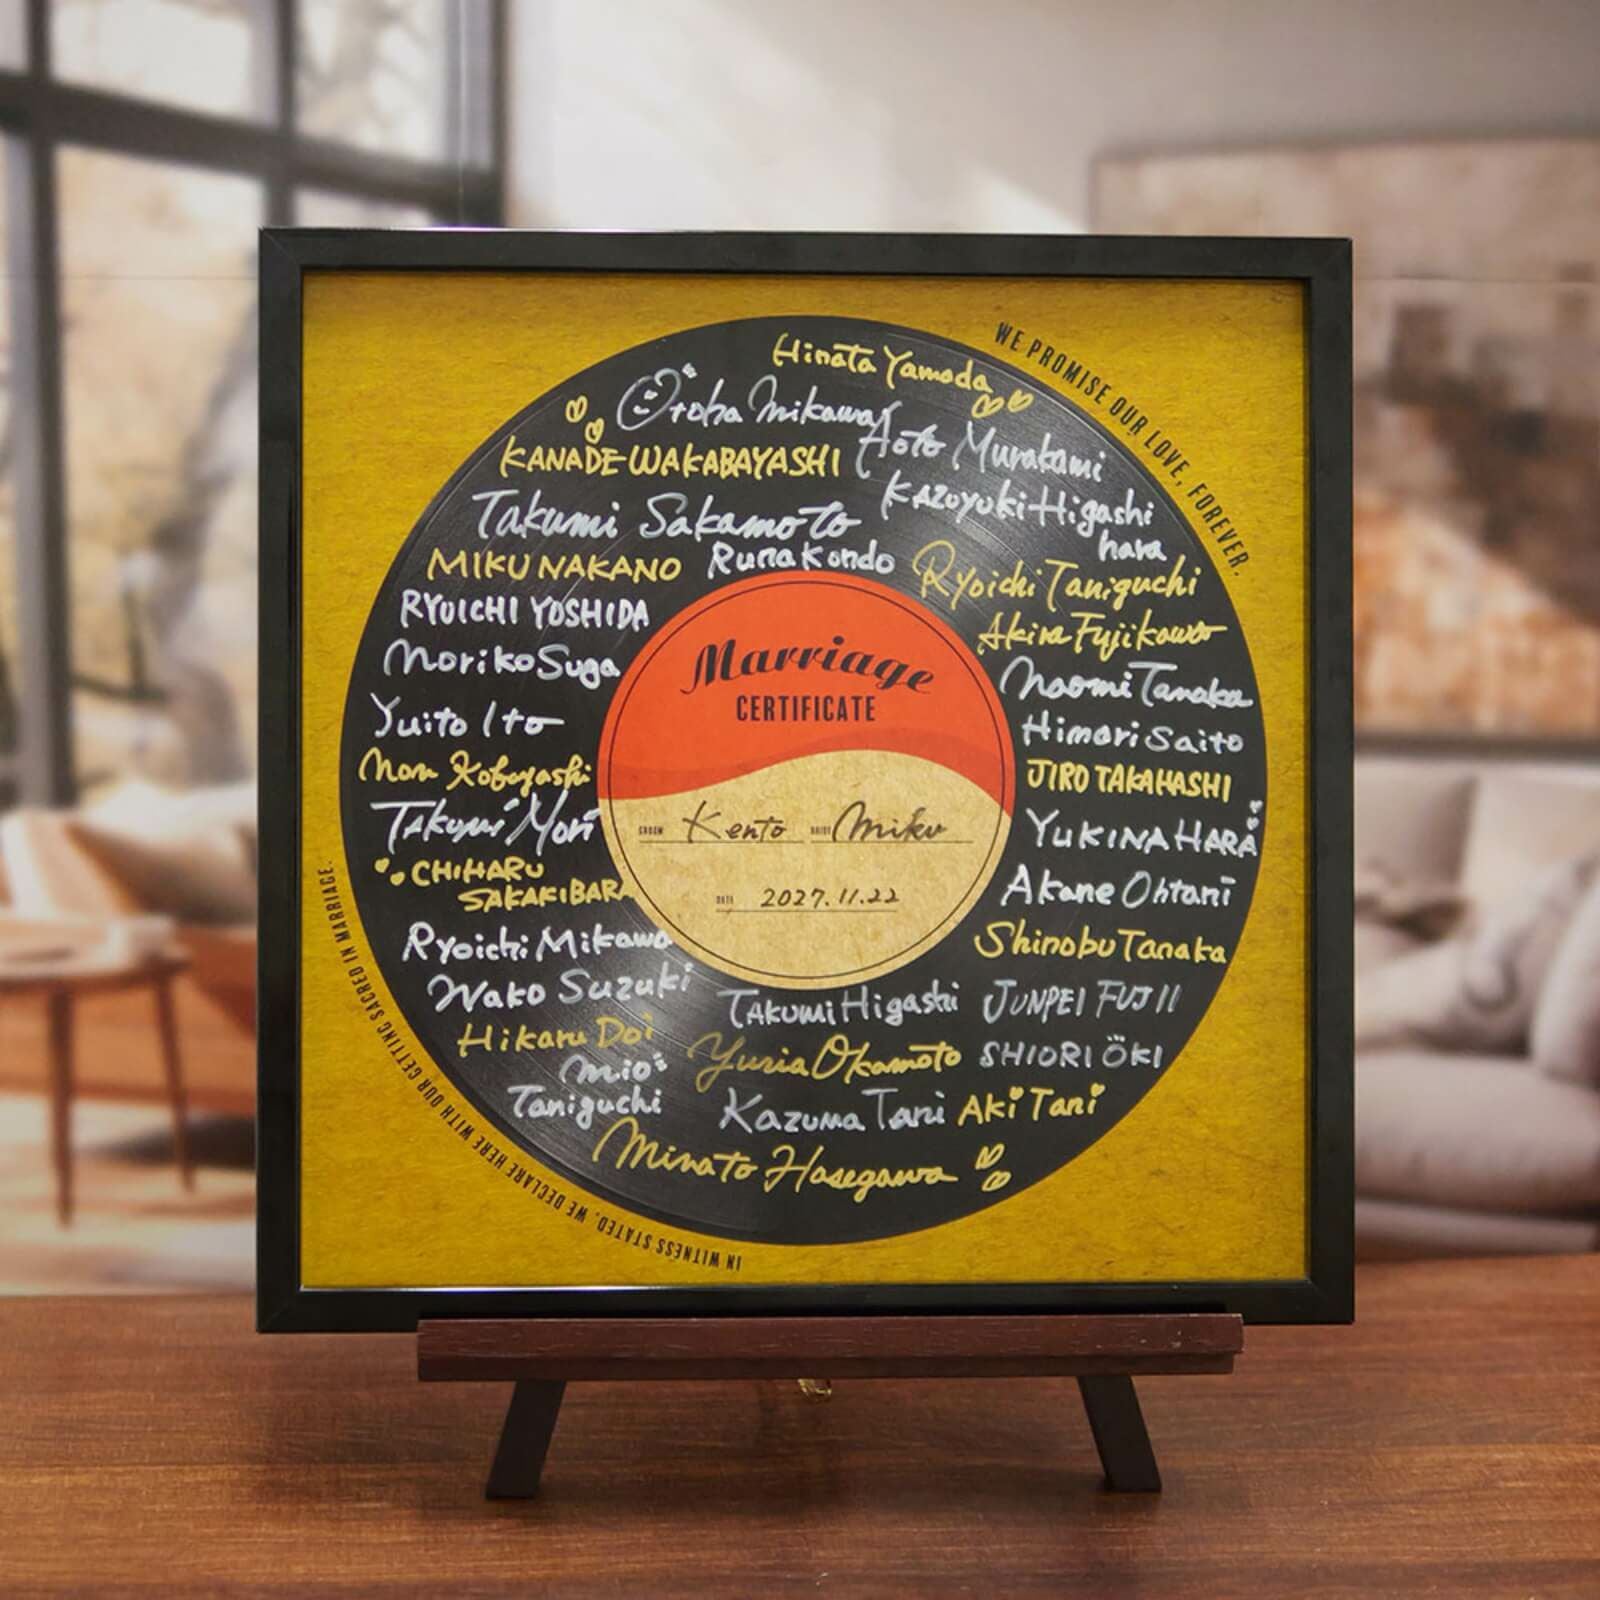 WE PROMISE OUR LOVE, FOREVER.
Hinata Yamada
Otoha Mikawa
Aoto Murakami
KANADE WAKABAYASHI
KAZUYUKI Higashi
hara
Takumi Sakamoto
Runa Kondo
MIKU NAKANO
Ryoichi Taniguchi
RYUICHI YOSHIDA
Akira Fujikawa
Noriko Suga
Naomi Tanaka
Yuito Ito
Himari Saito
Kobayashi
JIRO TAKAHASHI
Takumi Mori
YUKINA HARA
CHIHARU
SAKAKIBARA
Akane Ohtani
Ryoichi Mikawa
Shinobu Tanaka
Wako Suzuki
TAKUMI Higashi
JUNPEI FUJII
Hikaru Doi
Yuria Okamoto
SHIORI ŌKI
Mio
Taniguchi
KAZUMA Tani
AKI TANI
Minato Hasegawa
Marriage
CERTIFICATE
GROOM Kento BRIDE Miku
DATE 2027.11.22
IN WITNESS STATED, WE DECLARE HERE WITH OUR GETTING SACRED IN MARRIAGE.